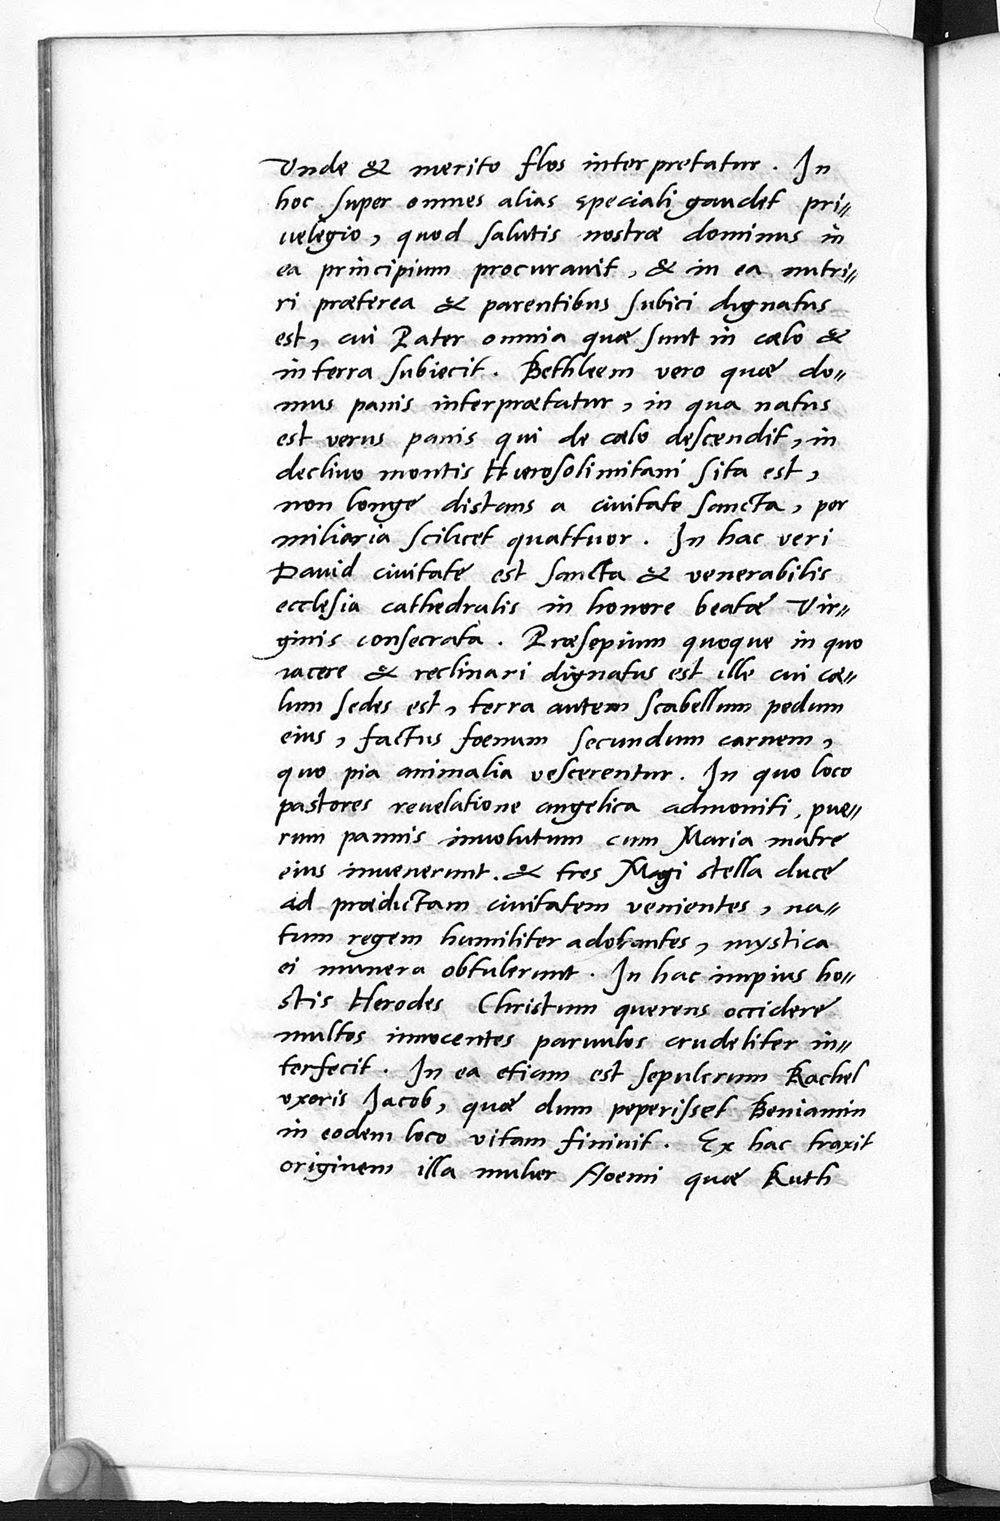 Vnde & merito flos interpretatur. In
hoc super omnes alias speciali gaudet pri//
uelegio, quod salutis nostræ dominus in
ea principium procurauit, & in ea nutri//
ri præterea & parentibus subici dignatus
est, cui Pater omnia quæ sunt in cælo &
in terra subiecit. Bethleem vero quæ do//
mus panis interprætatur, in qua natus
est verus panis qui de cælo descendit, in
decliuo montis Hierosolimitani sita est,
non longe distans a ciuitate sancta, per
miliaria scilicet quattuor. In hac veri
Dauid ciuitate est sancta & venerabilis
ecclesia cathedralis in honore beatæ Vir//
ginis consecrata. Præsepium quoque in quo
iacere & reclinari dignatus est ille cui cæ//
lum sedes est, terra autem scabellum pedum
eius, factus foenum secundum carnem,
quo pia animalia vescerentur. In quo loco
pastores reuelatione angelica admoniti, pue//
rum pannis inuolutum cum Maria matre
eius inuenerunt. & tres Magi stella duce
ad prædictam ciuitatem venientes, na//
tum regem humiliter adorantes, mystica
ei munera obtulerunt. In hac impius ho//
stis Herodes Christum querens occidere
multos innocentes paruulos crudeliter in//
terfecit. In ea etiam est sepulcrum Rachel
vxoris Jacob, quæ dum peperisset Beniamin
in eodem loco vitam finiuit. Ex hac traxit
originem illa mulier Noemi quæ Ruth